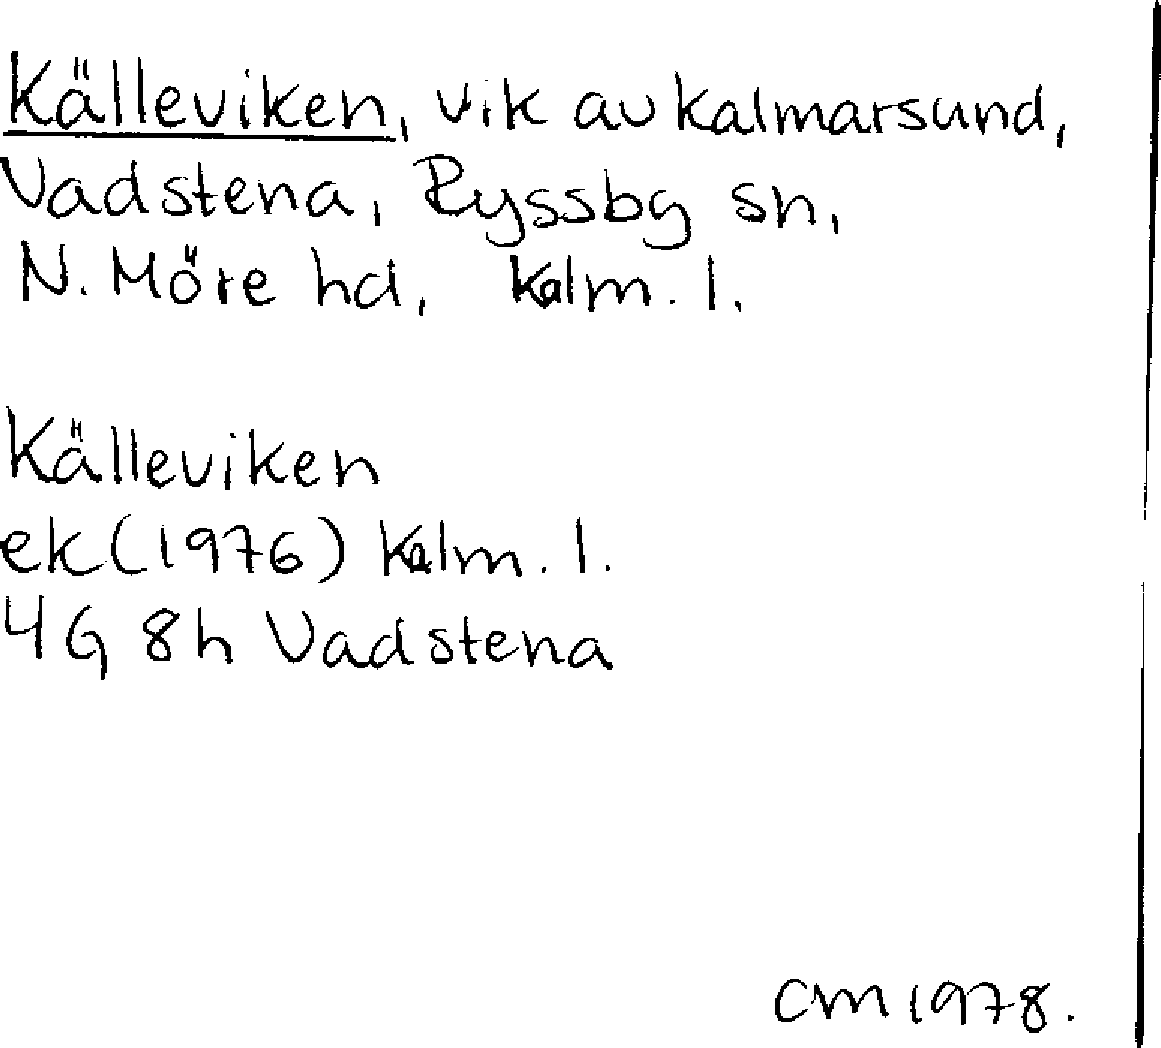 Källeviken, vik av Kalmarsund,
Vadstena, Ryssby sn,
N. Möre hd, Kalm. l.
Källeviken
ek (1976) Kalm. l.
4G 8h Vadstena
CM 1978.